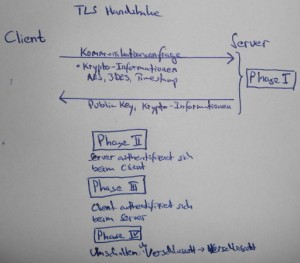 TLS Handshake
Client
Server
Kommunikationsanfrage
+ Krypto-Informationen
AES, 3DES, Timestamp
Phase I
Public Key, Krypto-Informationen
Phase II
Server authentifiziert sich
beim Client
Phase III
Client authentifiziert sich
beim Server
Phase IV
Umschalten